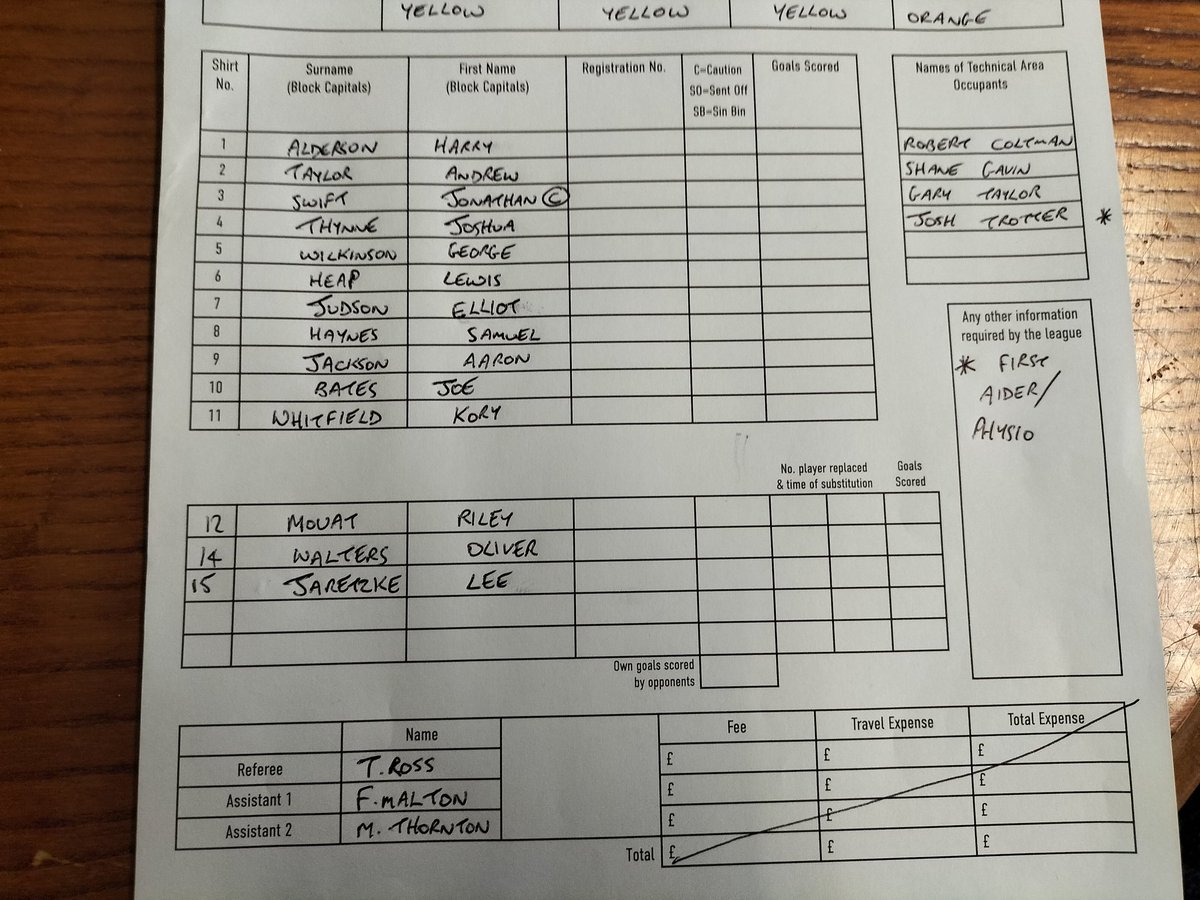 YELLOW YELLOW YELLOW ORANGE
Shirt No. Surname (Block Capitals) First Name (Block Capitals) Registration No. C=Caution SO=Sent Off SB=Sin Bin Goals Scored
1 ALDERSON HARRY
2 TAYLOR ANDREW
3 SWIFT JONATHAN C
4 THYNNE JOSHUA
5 WILKINSON GEORGE
6 HEAP LEWIS
7 JUDSON ELLIOT
8 HAYNES SAMUEL
9 JACKSON AARON
10 BATES JOE
11 WHITFIELD KORY
Names of Technical Area
Occupants
ROBERT COLTMAN
SHANE GAVIN
GARY TAYLOR
JOSH TROTTER *
Any other information
required by the league
* FIRST
AIDER/
PHYSIO
No. player replaced & time of substitution Goals Scored
12 MOUAT RILEY
14 WALTERS OLIVER
15 JARETZKE LEE
Own goals scored
by opponents
Name Fee Travel Expense Total Expense
Referee T. ROSS £ £ £
Assistant 1 F. MALTON £ £ £
Assistant 2 M. THORNTON £ £ £
Total £ £ £